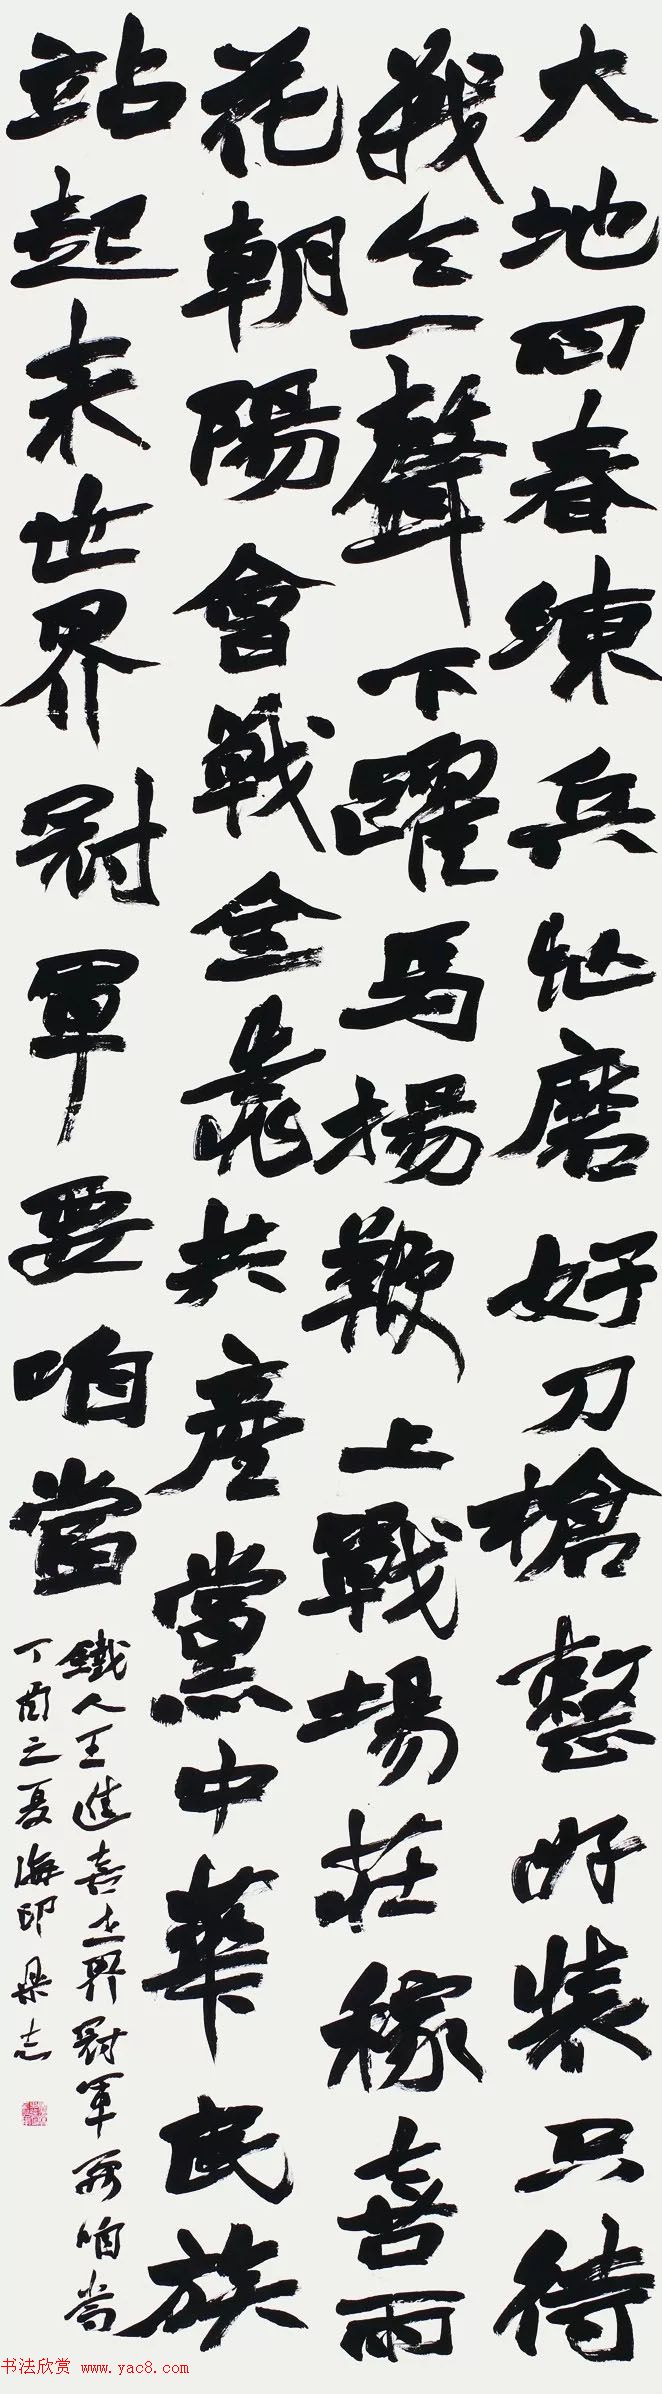 大地回春練兵忙磨好刀槍整好裝只待
战令一聲下躍馬揚鞭上戰場莊稼喜雨
花朝陽會戰全靠共產黨中華民族
站起来世界冠軍要咱當
鐵人王進喜世界冠軍要咱當
丁酉之夏海印
书法欣赏 www.yac8.com